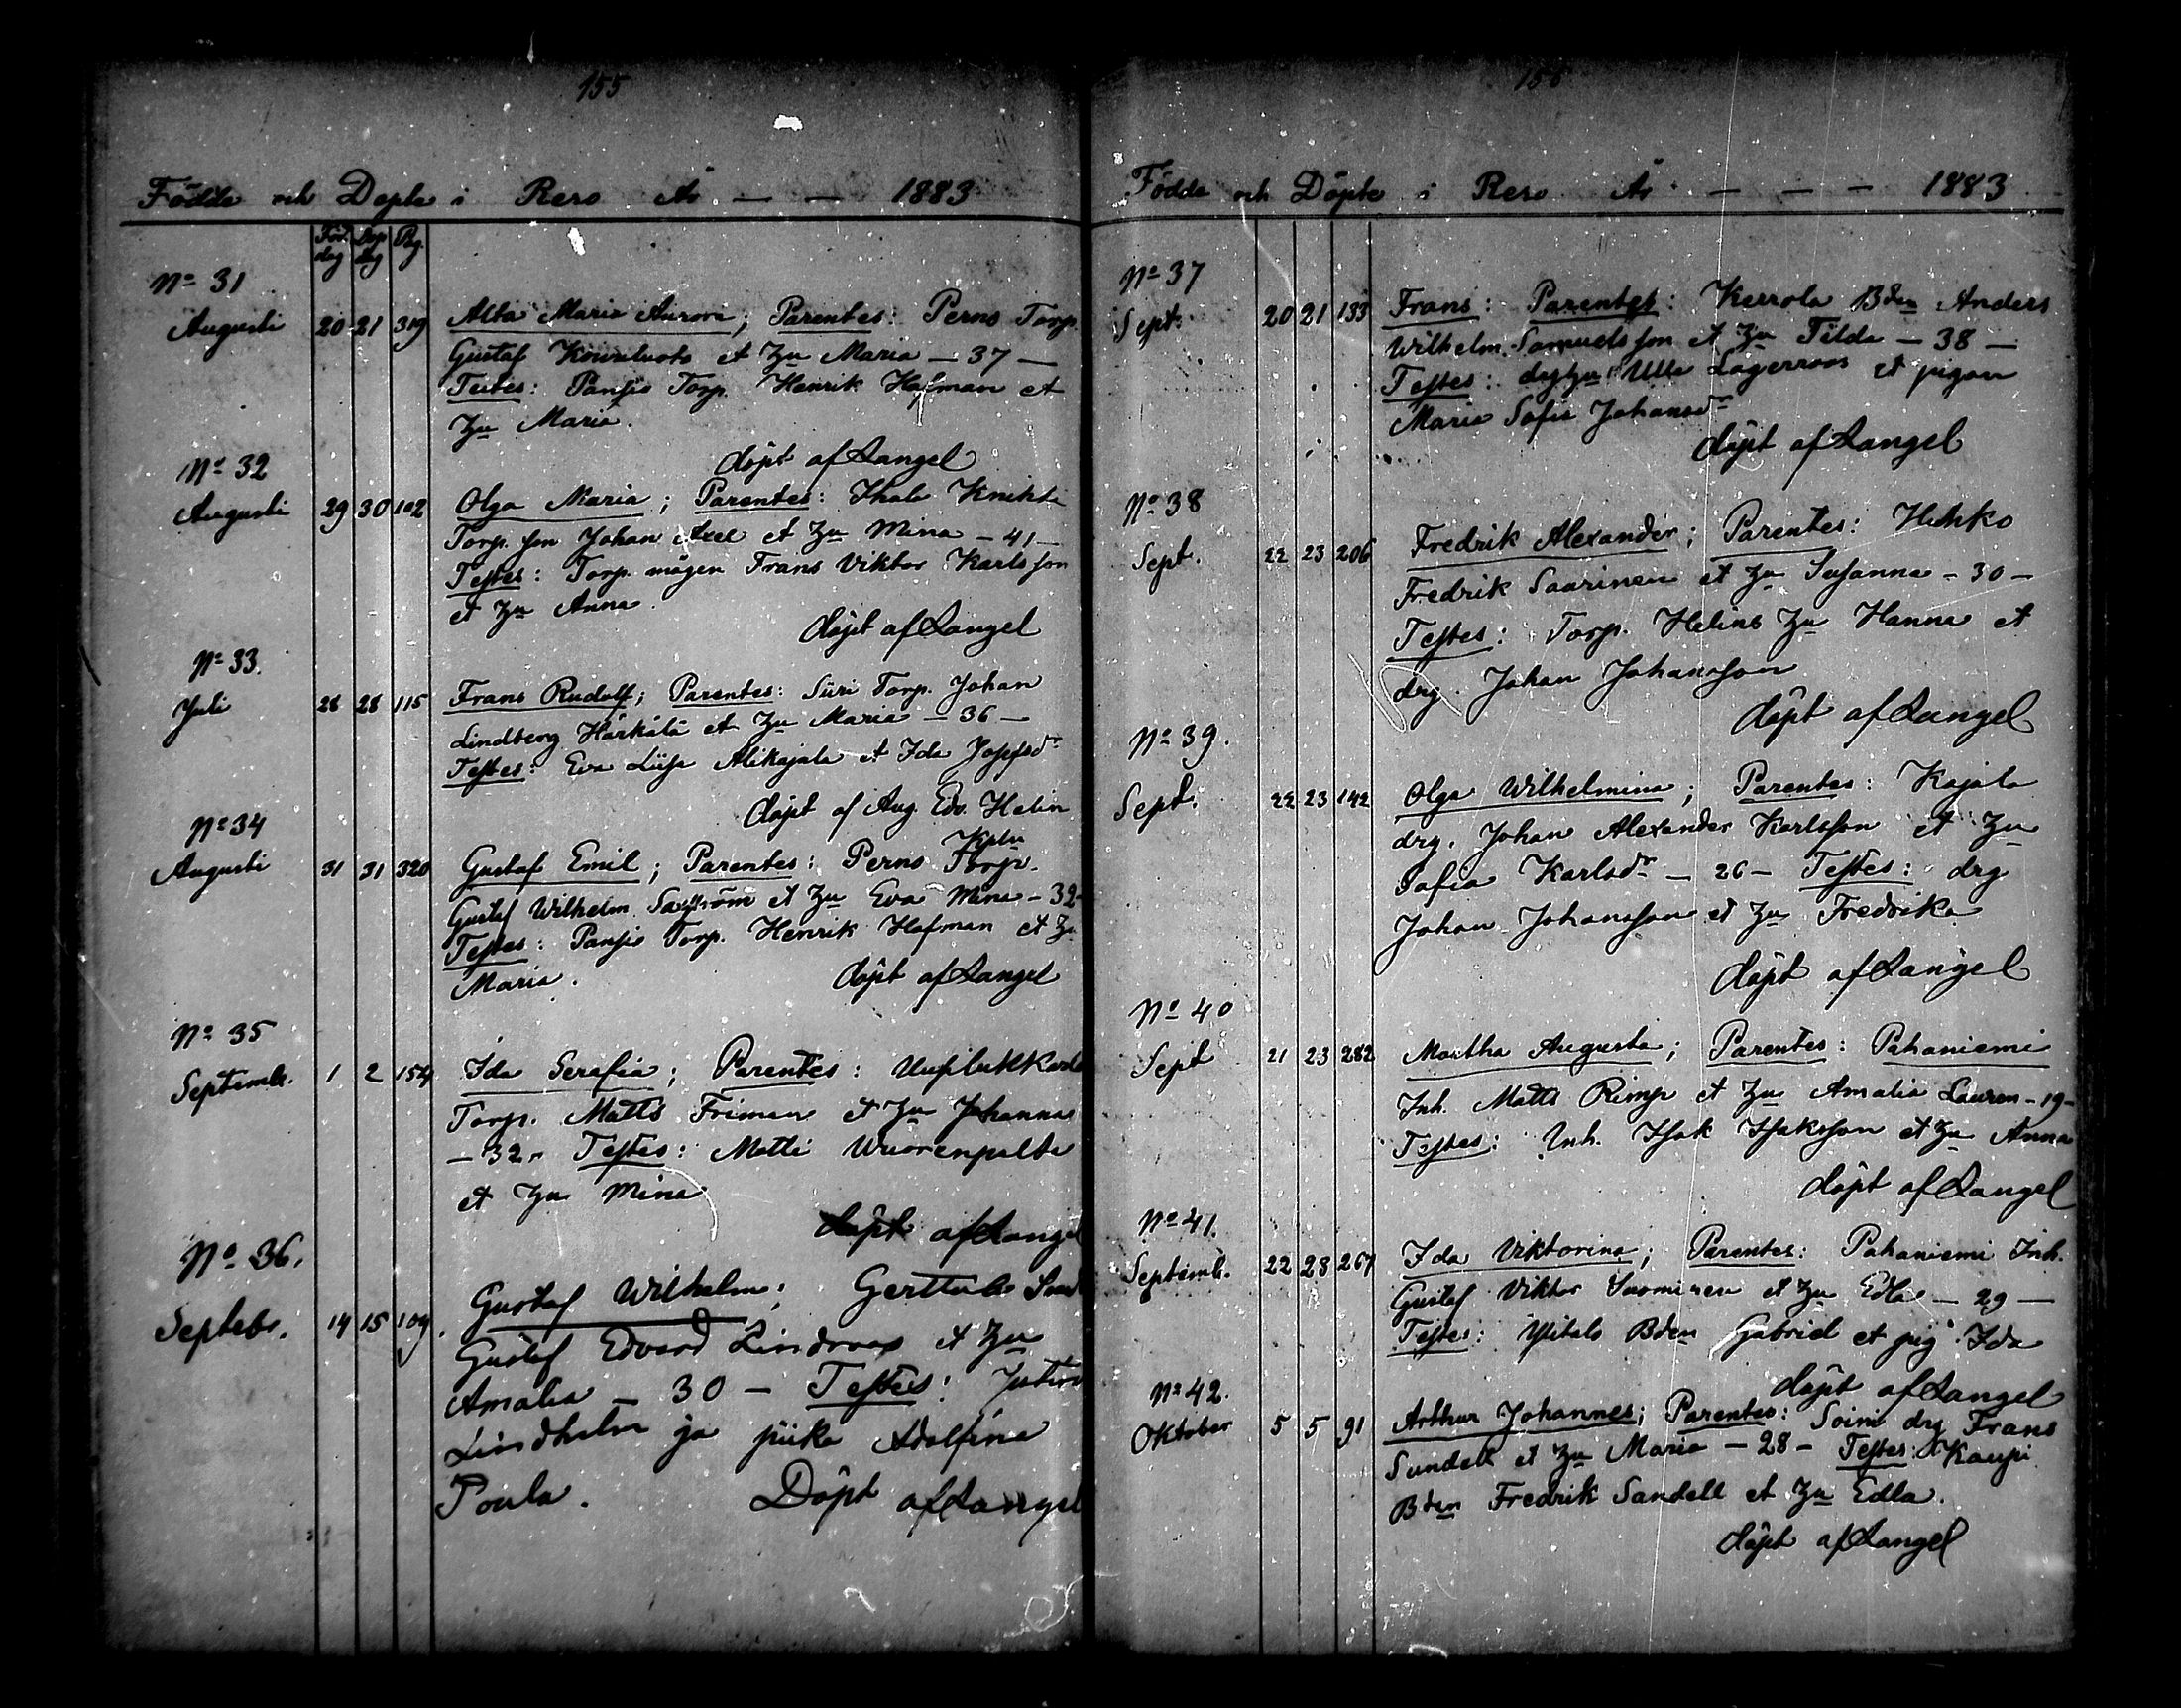 155
Födde och Döpte i Reso År — — 1883
Föd. dag Döp dag Pag.
No 31
Augusti 20 21 319 Alba Maria Aurora; Parentes: Perno Torp.
Gustaf Kouruluoto et Hu Maria — 37 —
Testes: Pansio Torp. Henrik Hofman et
Hu Maria.
döpt af Langel
No 32
Augusti 29 30 102 Olga Maria; Parentes: Ihala Knihti
Torp. son Johan Axel et Hu Mina — 41 —
Testes: Torp. mågen Frans Viktor Karlsson
et Hu Anna.
döpt af Langel
No 33.
Juli 28 28 115 Frans Rudolf; Parentes: Suri Torp. Johan
Lindberg Härkälä et Hu Maria — 36 —
Testes: Eva Liisa Alikajala et Ida Josefsdr
döpt af Aug. Edv. Helin
Kpln
No 34
Augusti 31 31 320 Gustaf Emil; Parentes: Perno Torp.
Gustaf Wilhelm Saxström et Hu Eva Mina — 32 -
Testes: Pansio Torp. Henrik Hofman et Hu
Maria. döpt af Langel
No 35
Septemb. 1 2 154 Ida Serafia; Parentes:
Torp. Matts Friman et Hu Johanna
— 32 — Testes: Matti Wuorenpelto
et Hu Mina
döpt af Langel
No 36.
Septebr. 14 15 109. Gustaf Wilhelm; Gerttula
Gustaf Edvard Lindroos et Hu
Amalia — 30 — Testes:
Lindholm ja piika Adolfina
Poula. Döpt af Langel
156
Födde och Döpte i Reso År — — — 1883
No 37
Sept. 20 21 133 Frans: Parentes: Kerrola Bden Anders
Wilhelm Samuelsson et Hu Tilda — 38 —
Testes: Ulla Lagerroos et pigan
Maria Sofia Johansdr
döpt af Langel
No 38
Sept. 22 23 206 Fredrik Alexander; Parentes: Huhko
Fredrik Saarinen et Hu Susanna — 30 —
Testes: Torp. Helins Hu Hanna et
drg. Johan Johansson
döpt af Langel
No 39.
Sept. 22 23 142 Olga Wilhelmina; Parentes: Kajala
drg. Johan Alexander Karlsson et Hu
Sofia Karlsdr — 26 — Testes: drg
Johan Johansson et Hu Fredrika
döpt af Langel
No 40
Sept 21 23 282 Martha Augusta; Parentes: Pahaniemi
Inh. Matts Rimpi et Hu Amalia Lauren — 19 —
Testes: Inh. Isak Isaksson et Hu Anna
döpt af Langel
No 41.
Septemb. 22 23 267 Ida Viktorina; Parentes: Pahaniemi Inh.
Gustaf Viktor Suominen et Hu Edla — 29 —
Testes: Ylitalo Bden Gabriel et pig. Ida
döpt af Langel
No 42.
Oktober 5 5 91 Arthur Johannes; Parentes: Soini drg Frans
Sundell et Hu Maria — 28 — Testes: Kaupi
Bden Fredrik Sandell et Hu Edla.
döpt af Langel